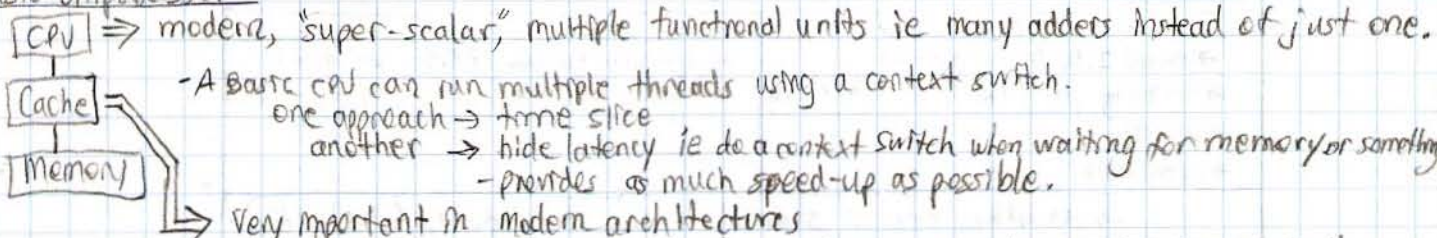 CPU => modern, "super-scalar," multiple functional units ie many adders instead of just one.
- A Basic cpu can run multiple threads using a context switch.
Cache
one approach → time slice
another → hide latency ie do a context switch when waiting for memory or something
Memory
- provides as much speed-up as possible.
Very important in modern architectures